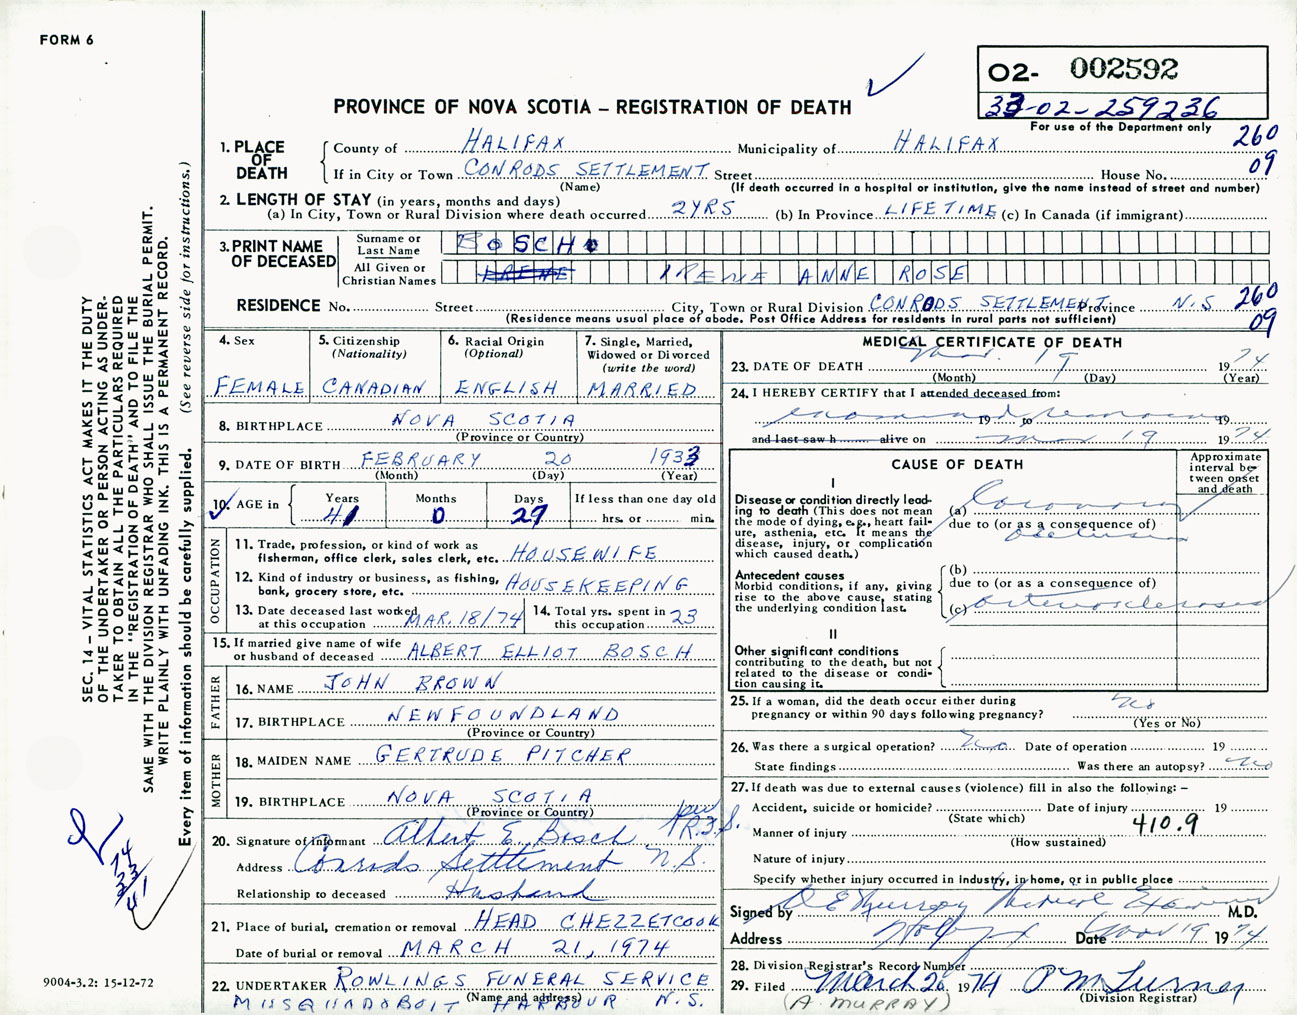 FORM 6
O2- 002592
33-02-259236
For use of the Department only
PROVINCE OF NOVA SCOTIA – REGISTRATION OF DEATH
260
09
1. PLACE OF DEATH
County of HALIFAX Municipality of HALIFAX
If in City or Town CONRODS SETTLEMENT Street House No.
(Name) (If death occurred in a hospital or institution, give the name instead of street and number)
2. LENGTH OF STAY (in years, months and days)
(a) In City, Town or Rural Division where death occurred 2YRS (b) In Province LIFETIME (c) In Canada (if immigrant)
3. PRINT NAME OF DECEASED
Surname or Last Name BOSCH
All Given or Christian Names IRENE IRENE ANNE ROSE
RESIDENCE No. Street City, Town or Rural Division CONRODS SETTLEMENT Province N.S 260
(Residence means usual place of abode. Post Office Address for residents in rural parts not sufficient) 09
4. Sex FEMALE
5. Citizenship (Nationality) CANADIAN
6. Racial Origin (Optional) ENGLISH
7. Single, Married, Widowed or Divorced (write the word) MARRIED
8. BIRTHPLACE NOVA SCOTIA
(Province or Country)
9. DATE OF BIRTH FEBRUARY 20 1933
(Month) (Day) (Year)
10. AGE in Years 41 Months 0 Days 27 If less than one day old hrs. or min.
OCCUPATION
11. Trade, profession, or kind of work as fisherman, office clerk, sales clerk, etc. HOUSEWIFE
12. Kind of industry or business, as fishing, bank, grocery store, etc. HOUSEKEEPING
13. Date deceased last worked at this occupation MAR. 18/74
14. Total yrs. spent in this occupation 23
15. If married give name of wife or husband of deceased ALBERT ELLIOT BOSCH
FATHER
16. NAME JOHN BROWN
17. BIRTHPLACE NEWFOUNDLAND
(Province or Country)
MOTHER
18. MAIDEN NAME GERTRUDE PITCHER
19. BIRTHPLACE NOVA SCOTIA
(Province or Country)
per R.F.S.
20. Signature of Informant Albert E Bosch
Address Conrods Setttement N.S.
Relationship to deceased Husband
21. Place of burial, cremation or removal HEAD CHEZZETCOOK
Date of burial or removal MARCH 21, 1974
22. UNDERTAKER ROWLINGS FUNERAL SERVICE
(Name and address)
MUSQUODOBOIT HARBOUR N.S.
MEDICAL CERTIFICATE OF DEATH
23. DATE OF DEATH Mar. 19 1974
(Month) (Day) (Year)
24. I HEREBY CERTIFY that I attended deceased from:
examined remains 19 to 19
and last saw h alive on Mar 19 1974
CAUSE OF DEATH
Approximate interval between onset and death
I
Disease or condition directly leading to death (This does not mean the mode of dying, e.g., heart failure, asthenia, etc. It means the disease, injury, or complication which caused death.)
(a) Coronary
due to (or as a consequence of)
occlusion
Antecedent causes
Morbid conditions, if any, giving rise to the above cause, stating the underlying condition last.
(b)
due to (or as a consequence of)
(c) Arteriosclerosis
II
Other significant conditions
contributing to the death, but not related to the disease or condition causing it.
25. If a woman, did the death occur either during pregnancy or within 90 days following pregnancy? No
(Yes or No)
26. Was there a surgical operation? No Date of operation 19
State findings Was there an autopsy? No
27. If death was due to external causes (violence) fill in also the following: –
Accident, suicide or homicide? Date of injury 19
(State which)
Manner of injury 410.9
(How sustained)
Nature of injury
Specify whether injury occurred in industry, in home, or in public place
Signed by D E Murray Medical Examiner M.D.
Address Hfx Date Mar 19 1974
28. Division Registrar's Record Number
29. Filed March 26 1974 P M Turner
(A. MURRAY) (Division Registrar)
SEC. 14 – VITAL STATISTICS ACT MAKES IT THE DUTY
OF THE UNDERTAKER OR PERSON ACTING AS UNDER-
TAKER TO OBTAIN ALL THE PARTICULARS REQUIRED
IN THE "REGISTRATION OF DEATH" AND TO FILE THE
SAME WITH THE DIVISION REGISTRAR WHO SHALL ISSUE THE BURIAL PERMIT.
WRITE PLAINLY WITH UNFADING INK. THIS IS A PERMANENT RECORD.
Every item of information should be carefully supplied. (See reverse side for instructions.)
74
33
41
9004-3.2: 15-12-72